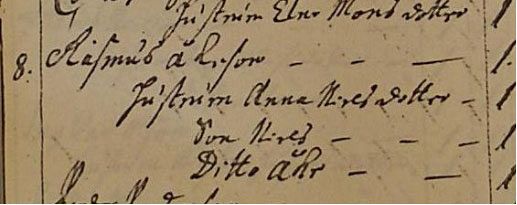 Hustrun Elne Mons dotter 1
8. Rasmus åkeson — — — 1.
Hustrun Anna Niels dotter - 1
Son Niels — — — 1
Ditto åke — — 1